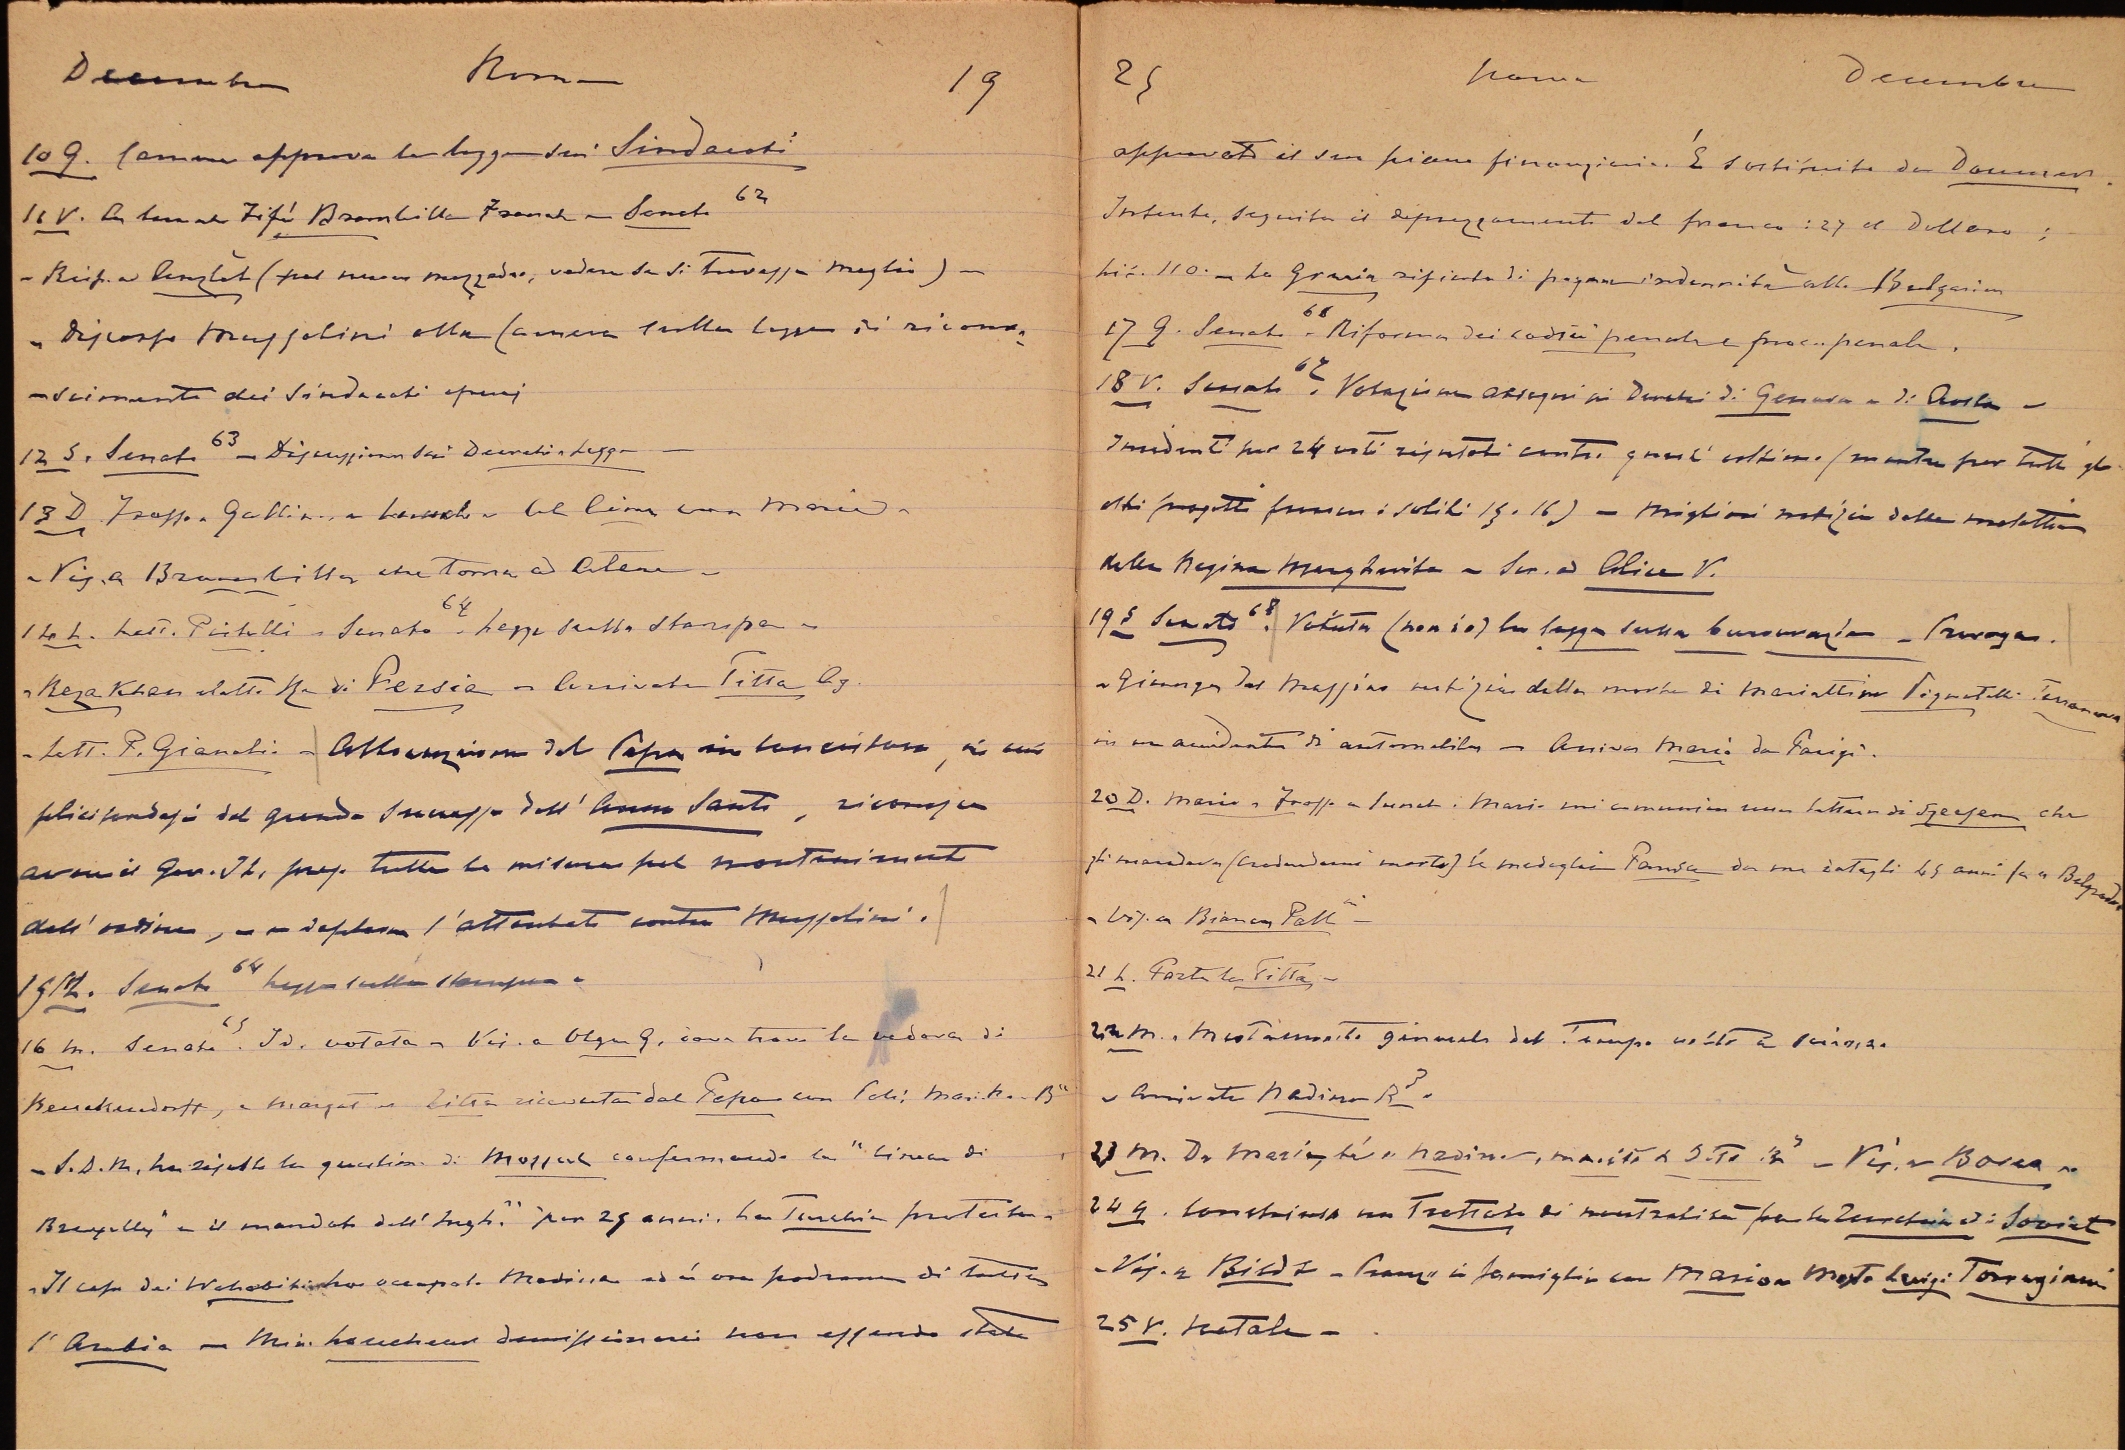 Decembre Roma 19
10 G. Camera approva la legge sui Sindacati
11 V. A lunch Fifì Brambilla Frasso - Senato 62
- Risp. a (pel nuovo mezzadro, vedere se si trovasse meglio) -
- Discorso Mussolini alla Camera sulla legge di ricono-
-scimento dei Sindacati operaj
12 S. Senato 63 - Discussione sui Decreti-Legge -
13 D. Frasso, a lunch - Al Cine con Mario -
- Vis. a Brambilla che torna ad Atene -
14 L. Lett. Pistelli - Senato 64. Legge sulla stampa -
- Reza Khan eletto Re di Persia - Arrivata Titta Ag.
- Lett. P. Gianelia - Allocuzione del Papa in concistoro, in cui
felicitandosi del grande successo dell'Anno Santo, riconosce
avere il Gov. It. prese tutte le misure pel mantenimento
dell'ordine, e deplora l'attentato contro Mussolini.
15 M. Senato 64 legge sulla stampa -
16 M. Senato 65. Id. votata - Vis. a Olga G. dove trovo la vedova di
Benckendorff, e Margot - Titta ricevuta dal Papa con
- S.D.N. ha risolto la question di Mossul confermando la "linea di
Bruxelles" e il mandato dell'Ingh.a per 25 anni. La Turchia protesta -
- Il capo dei Wahabiti ha occupato Medina ed è ora padrone di tutta
l'Arabia - Min. Loucheur dimissionario non essendo stato
25 Roma Decembre
approvato il suo piano finanziario. È sostituito da Doumer.
Intanto, seguita il deprezzamento del franco: 27 il Dollaro;
Lit. 110. - La Grecia rifiuta di pagare indennità alla Bulgaria
17 G. Senato 66 - Riforma dei codici penale e proc. penale.
18 V. Senato 67. Votazione assegni ai Duchi di Genova e di Aosta -
Incidenti per 24 voti risultati contro quest'ultimo (mentre per tutti gli
altri progetti furono i soliti 15. 16) - Migliori notizie della malattia
della Regina Margherita - Scr. ad Alice V.
19 S Senato 68. Votata (non io) la legge sulla burocrazia - Proroga.
- Giunge dal Messico notizia della morte di Mariettina Pignatelli Terranova
in un accidente di automobile - Arriva Mario da Parigi.
20 D. Mario e Frasso a lunch: Mario mi comunica una lettera di che
gli mandava (credendomi morto) la medaglia Panda da me datagli 45 anni fa a Belgrado
- Vis. a Bianca Pall.ni -
21 L. Parte la Titta -
22 M. - giornale del Tempo
- Arrivata Nadine R.
23 M. Da Mario, tè a Nadine, - Vis. a Bosca -
24 G. Conchiuso un Trattato di neutralità fra la Turchia ed i Soviet
- Vis. a Bildt - Pranzo in famiglia con Mario e Luigi Torrigiani
25 V. Natale -